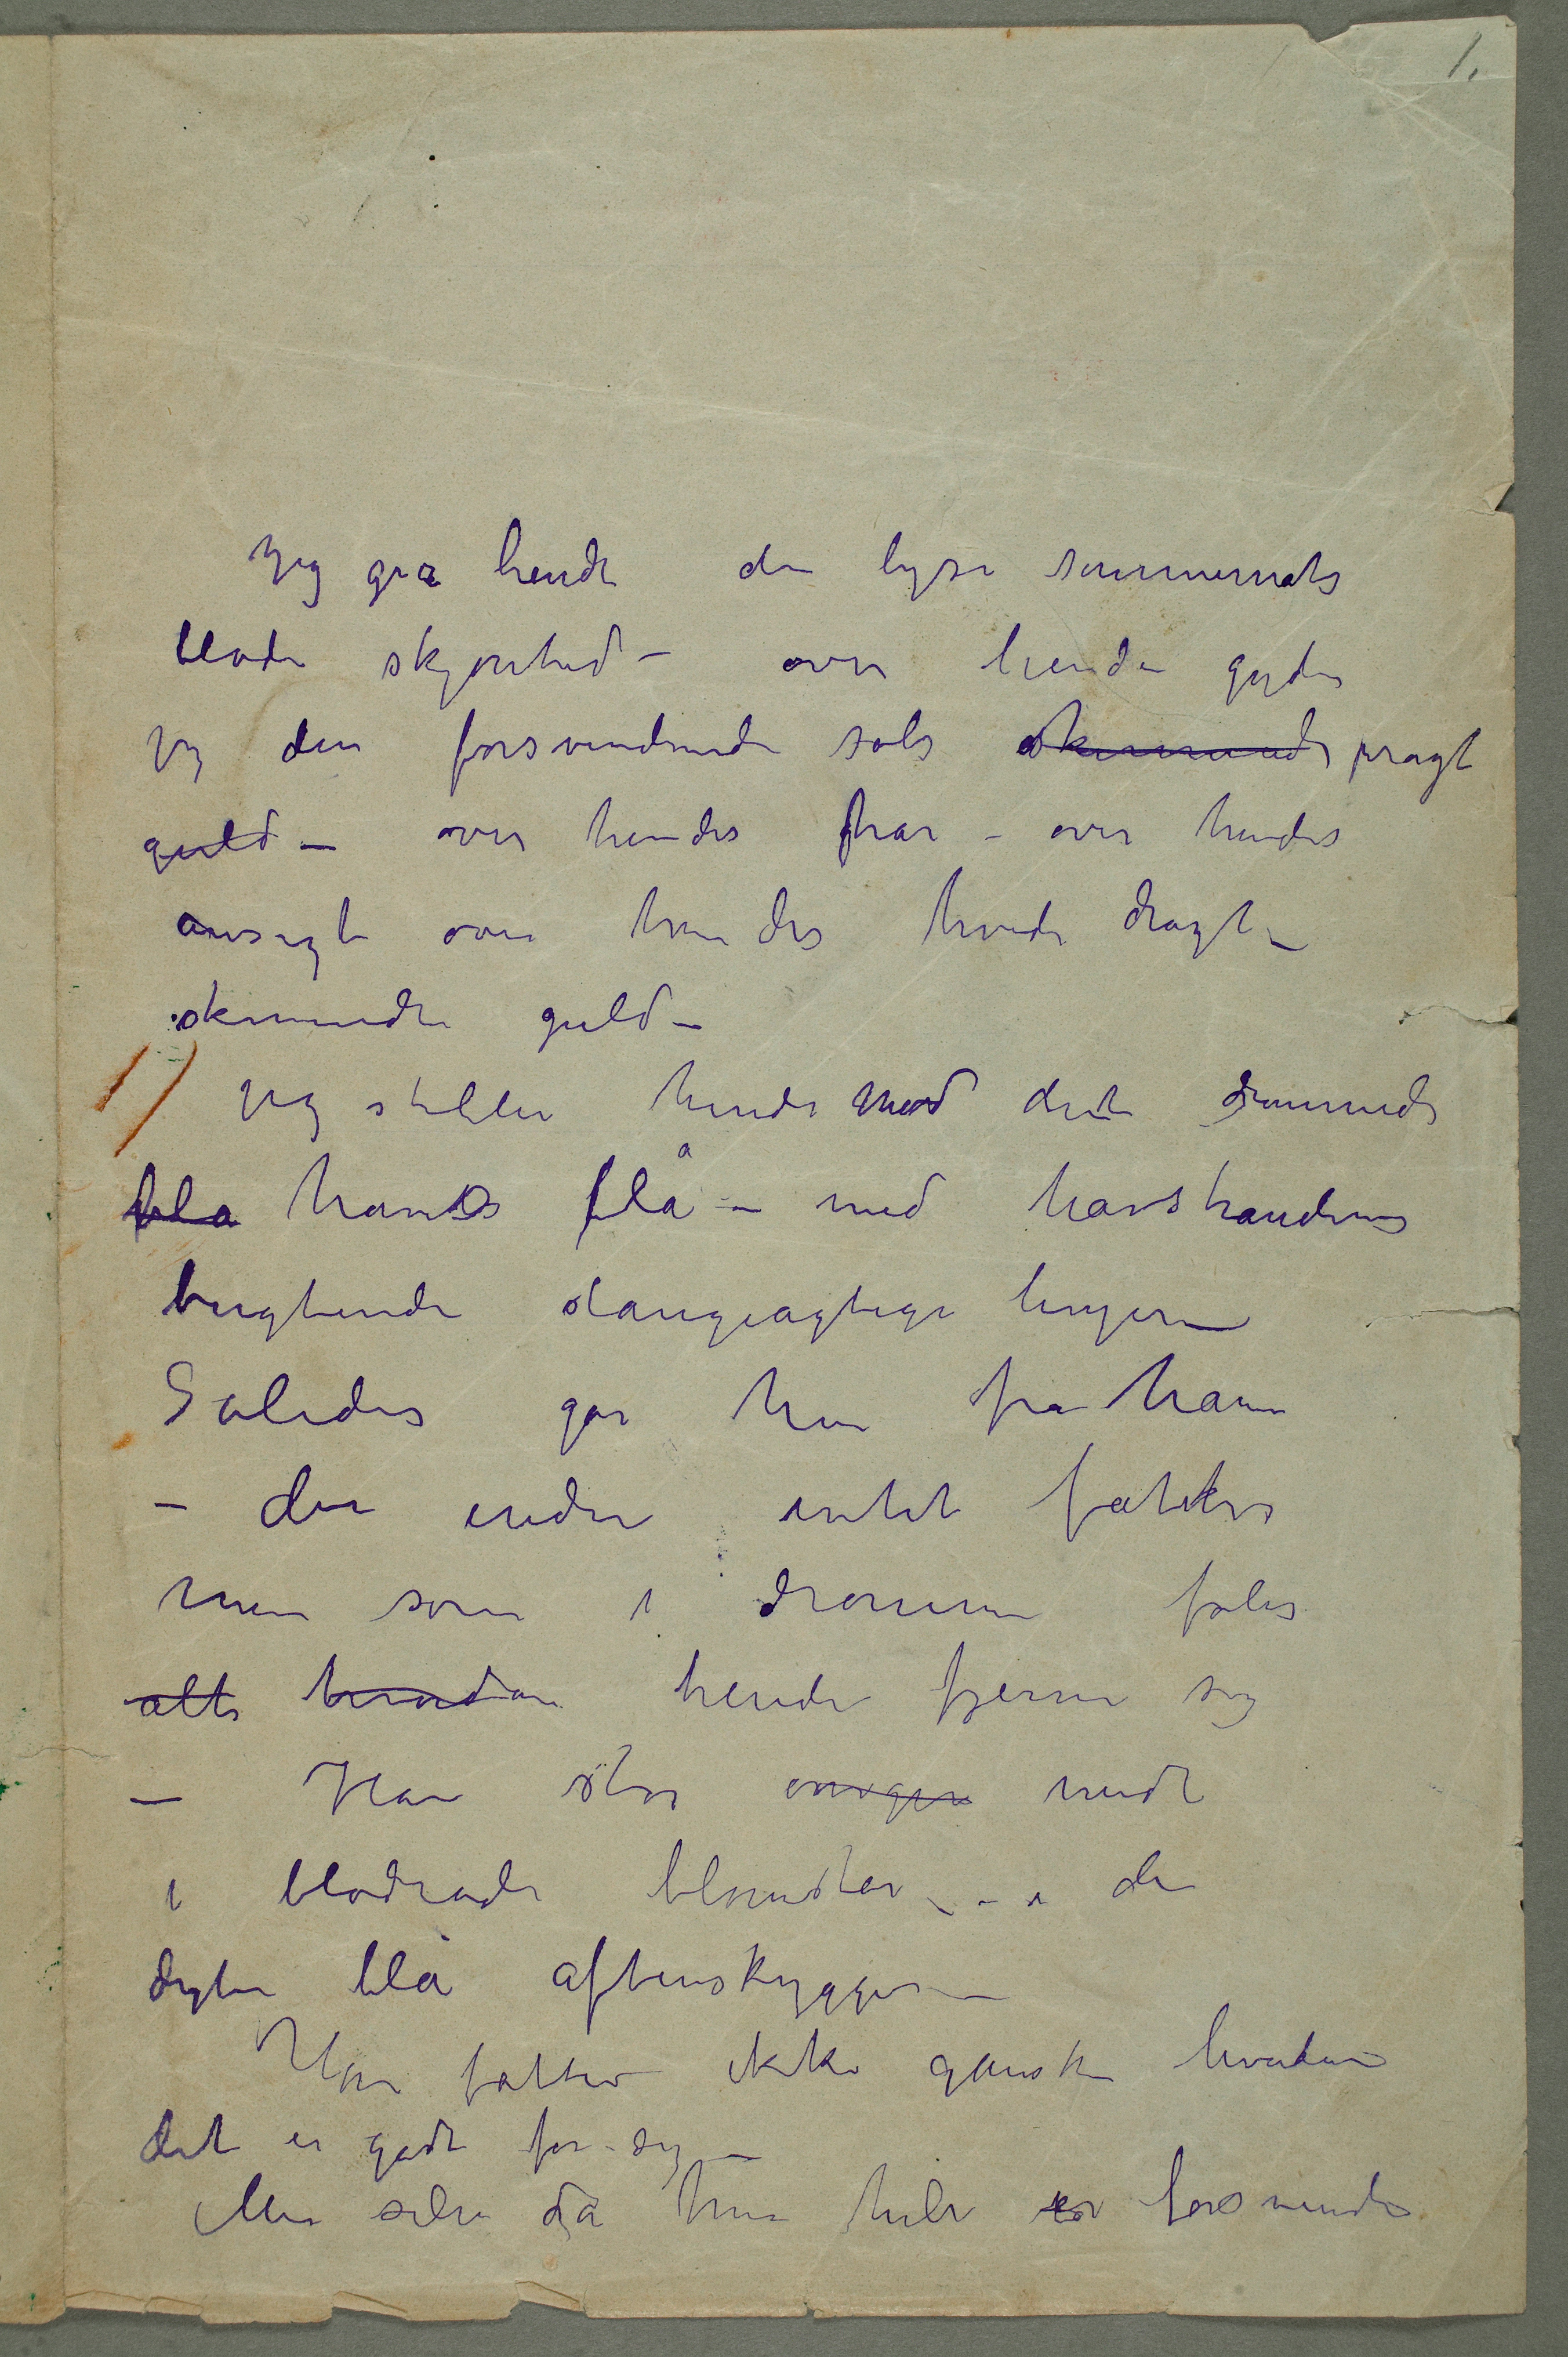 1.
Jeg gia hende den lyse sommernats
bløde skjønhed – over hende gyder
jeg den forsvindende sols skinnende pragt
guld – over hendes hår – over hendes
ansigt over hendes hvide dragt –
skinnende guld –
Jeg stiller hende mod det drømmende
bla havets blå – med havstrandens
bugtende slangeagtige linjer –
Således går hun fra ham
– der endnu intet fatter
men som i drømme føler
alt hvordan hende fjerne sig
– Han står midt
i blodrøde blomster – i den
dybe blå aftenskygge –
Han fatter ikke ganske hvordan
det er gådt for sig –
Men selv då hun helt er forsvundet